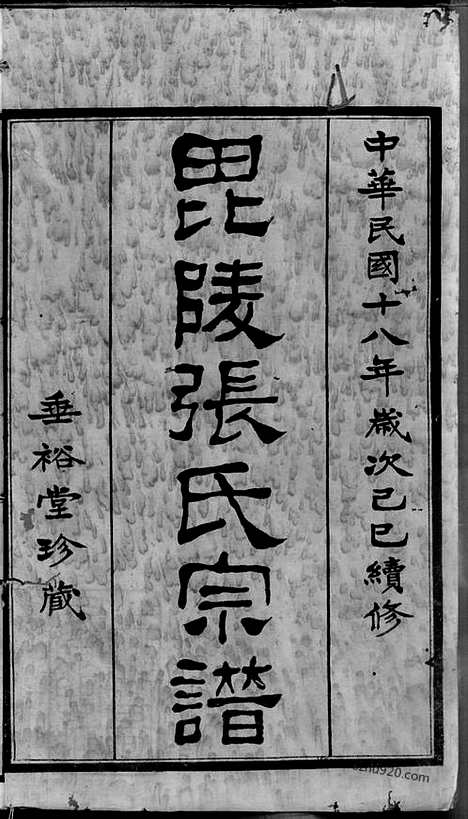 中華民國十八年歲次己巳續修
毘陵張氏宗譜
垂裕堂珍藏